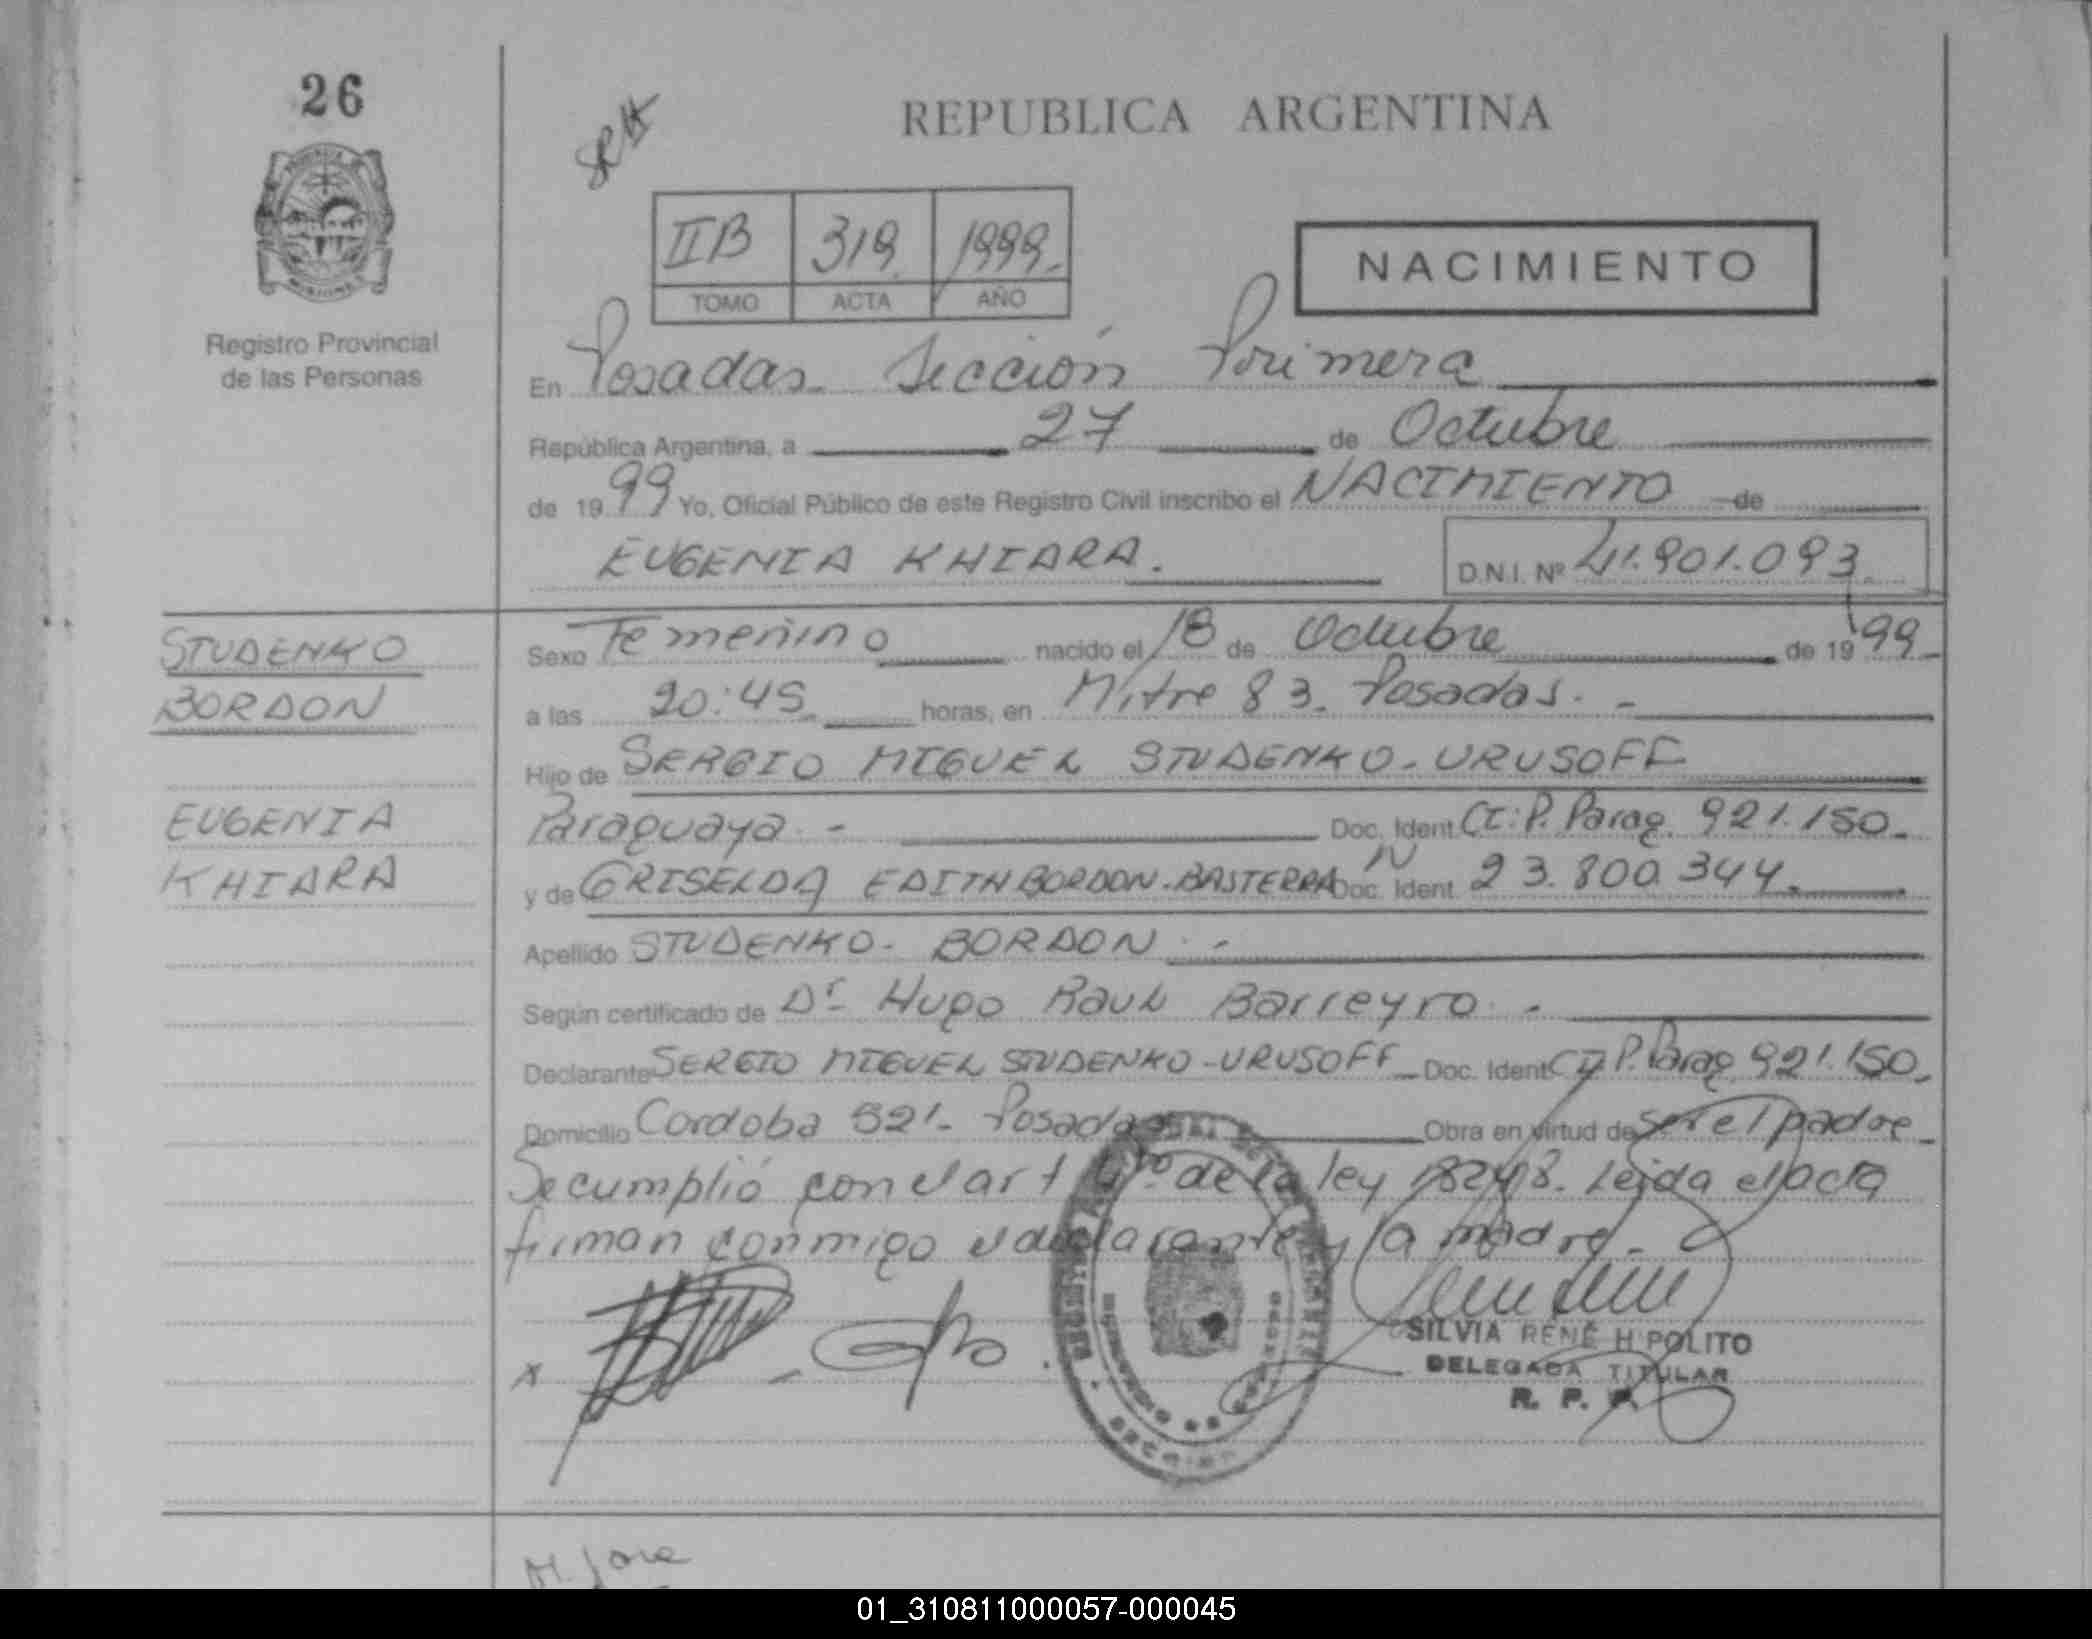 26
REPUBLICA ARGENTINA
IIB 319 1999
TOMO ACTA AÑO
NACIMIENTO
Registro Provincial
de las Personas
En Posadas Sección Primera
República Argentina, a 27 de Octubre
de 1999 Yo, Oficial Público de este Registro Civil inscribo el NACIMIENTO de
EUGENIA KHIARA. D.N.I. Nº 41.901.093
STUDENKO
BORDON
EUGENIA
KHIARA
Sexo Femenino nacido el 18 de Octubre de 1999
a las 20:45 horas, en Mitre 83. Posadas. -
Hijo de SERGIO MIGUEL STUDENKO - URUSOFF
Paraguaya - Doc. Ident. CI: P. Parag. 921.150.
y de GRISELDA EDITH BORDON - BASTERRA Doc. Ident. 23.800.344.
Apellido STUDENKO - BORDON. -
Según certificado de Dr Hugo Raul Barreyro. -
Declarante SERGIO MIGUEL STUDENKO - URUSOFF Doc. Ident CI P. Parag 921.150.
Domicilio Cordoba 921 - Posadas Obra en virtud de ser el padre -
Se cumplió con el art 4º de la ley 18248. Leida el acta
firman conmigo el declarante y la madre. -
x
SILVIA RENÉ HIPOLITO
DELEGADA TITULAR
R. P. P.
01_310811000057-000045